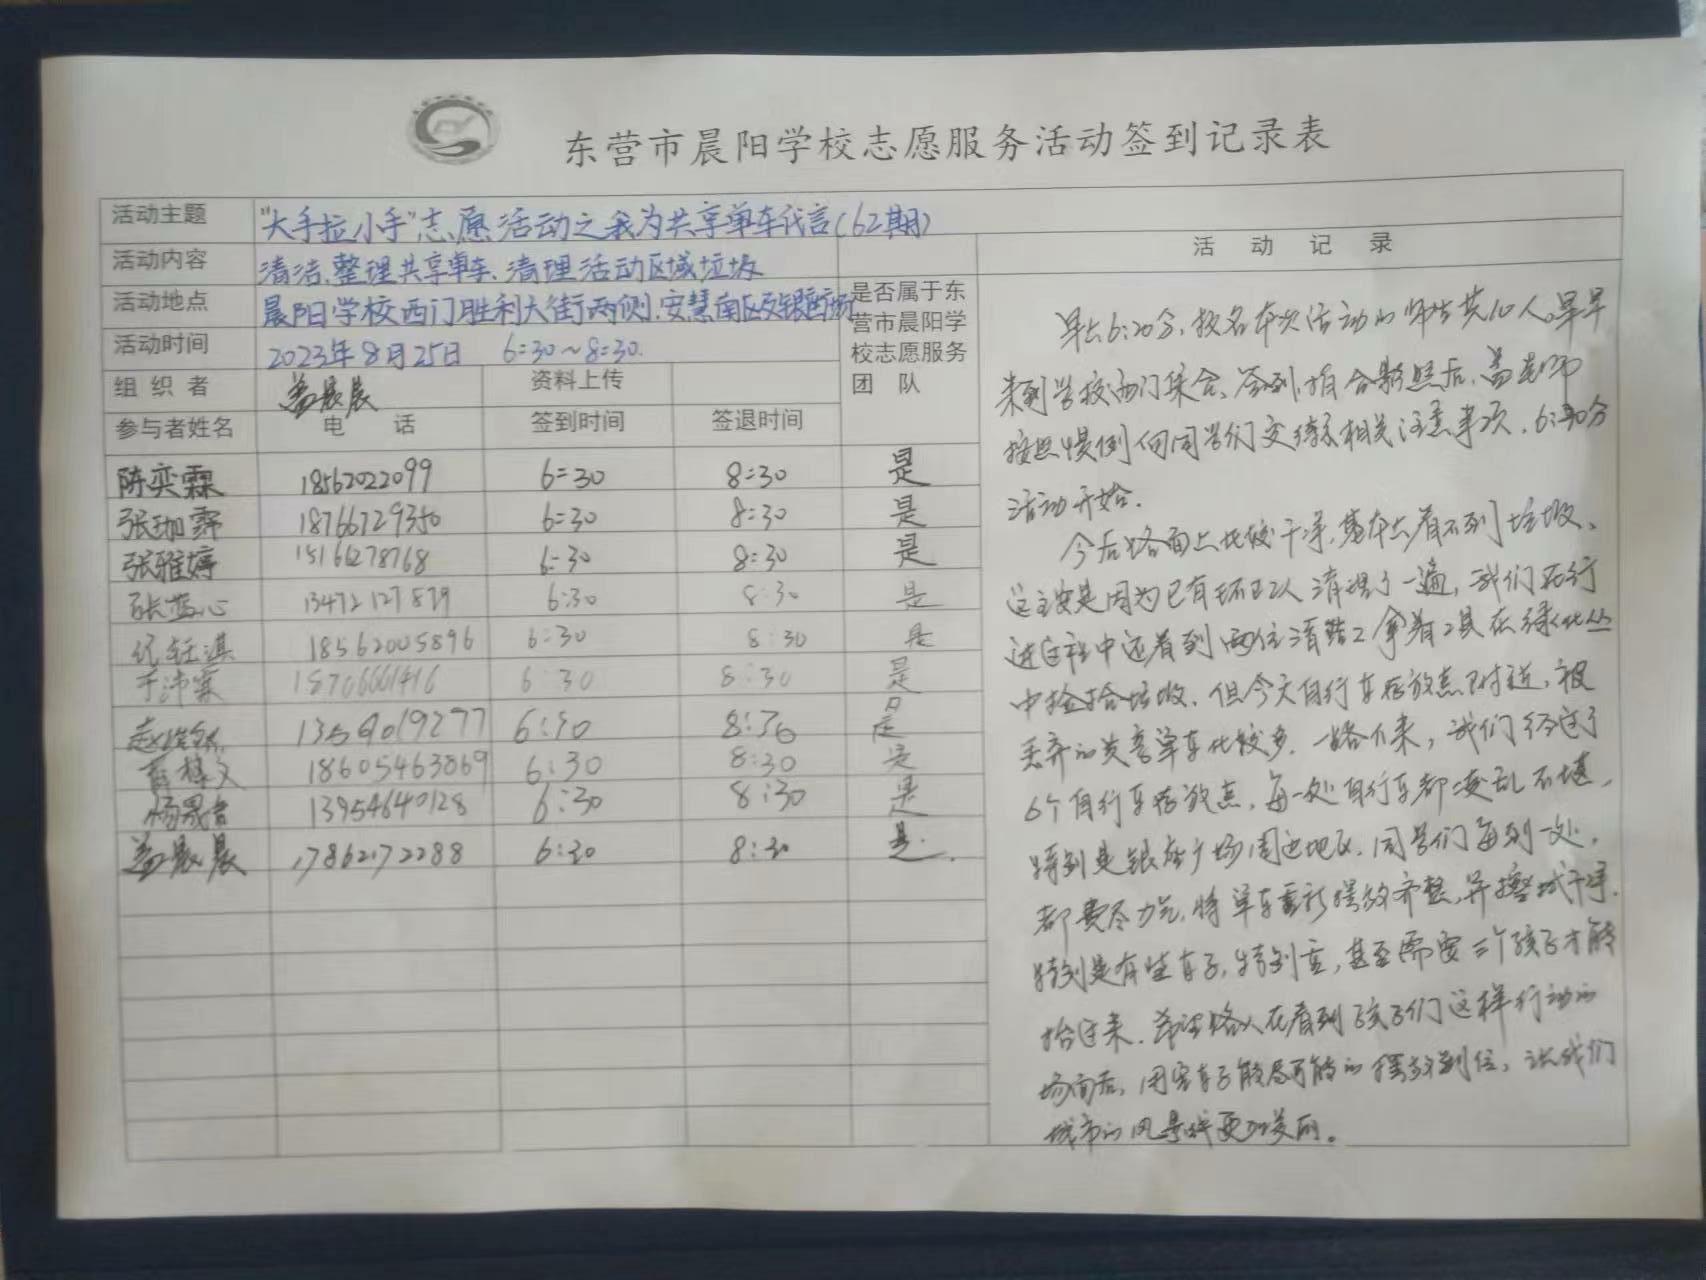 东营市晨阳学校志愿服务活动签到记录表
活动主题 "大手拉小手"志愿活动之我为共享单车代言(62期)
活动内容 清洁、整理共享单车、清理活动区域垃圾
活动地点 晨阳学校西门胜利大街两侧、安慧南区及银座广场
活动时间 2023年8月25日 6:30~8:30.
组织者 盖晨晨 资料上传
参与者姓名 电话 签到时间 签退时间
是否属于东
营市晨阳学
校志愿服务
团队
陈奕霖 18562022099 6:30 8:30 是
张珈霏 18766729350 6:30 8:30 是
张雅婷 15166278768 6:30 8:30 是
张蓝心 13472127879 6:30 8:30 是
钰淇 18562005896 6:30 8:30 是
于沛霖 18706661416 6:30 8:30 是
赵 13549019277 6:30 8:30 是
18605463869 6:30 8:30 是
杨晟 13954640128 6:30 8:30 是
盖晨晨 17862172288 6:30 8:30 是.
活动记录
早上6:20分,报名本次活动的师生共10人。早早
来到学校西门集合、签到、拍合影照后,盖老师
按照惯例向同学们交待相关注意事项,6:30分
活动开始.
今天路面上比较干净,基本上看不到垃圾、
这主要是因为已有环卫工人清理了一遍,我们在行
进过程中还看到两位清洁工拿着工具在绿化丛
中捡拾垃圾.但今天自行车存放点附近,被
丢弃的共享单车比较多.一路下来,我们经过了
6个自行车存放点,每一处自行车都凌乱不堪,
特别是银座广场周边地区.同学们每到一处,
都费尽力气,将单车重新摆放齐整,并擦拭干净.
特别是有些车子,特别重,甚至需要三个孩子才能
抬过来.希望路人在看到孩子们这样行动的
场面后,用完车子能尽可能的摆放到位,让我们
城市的风景线更加美丽。